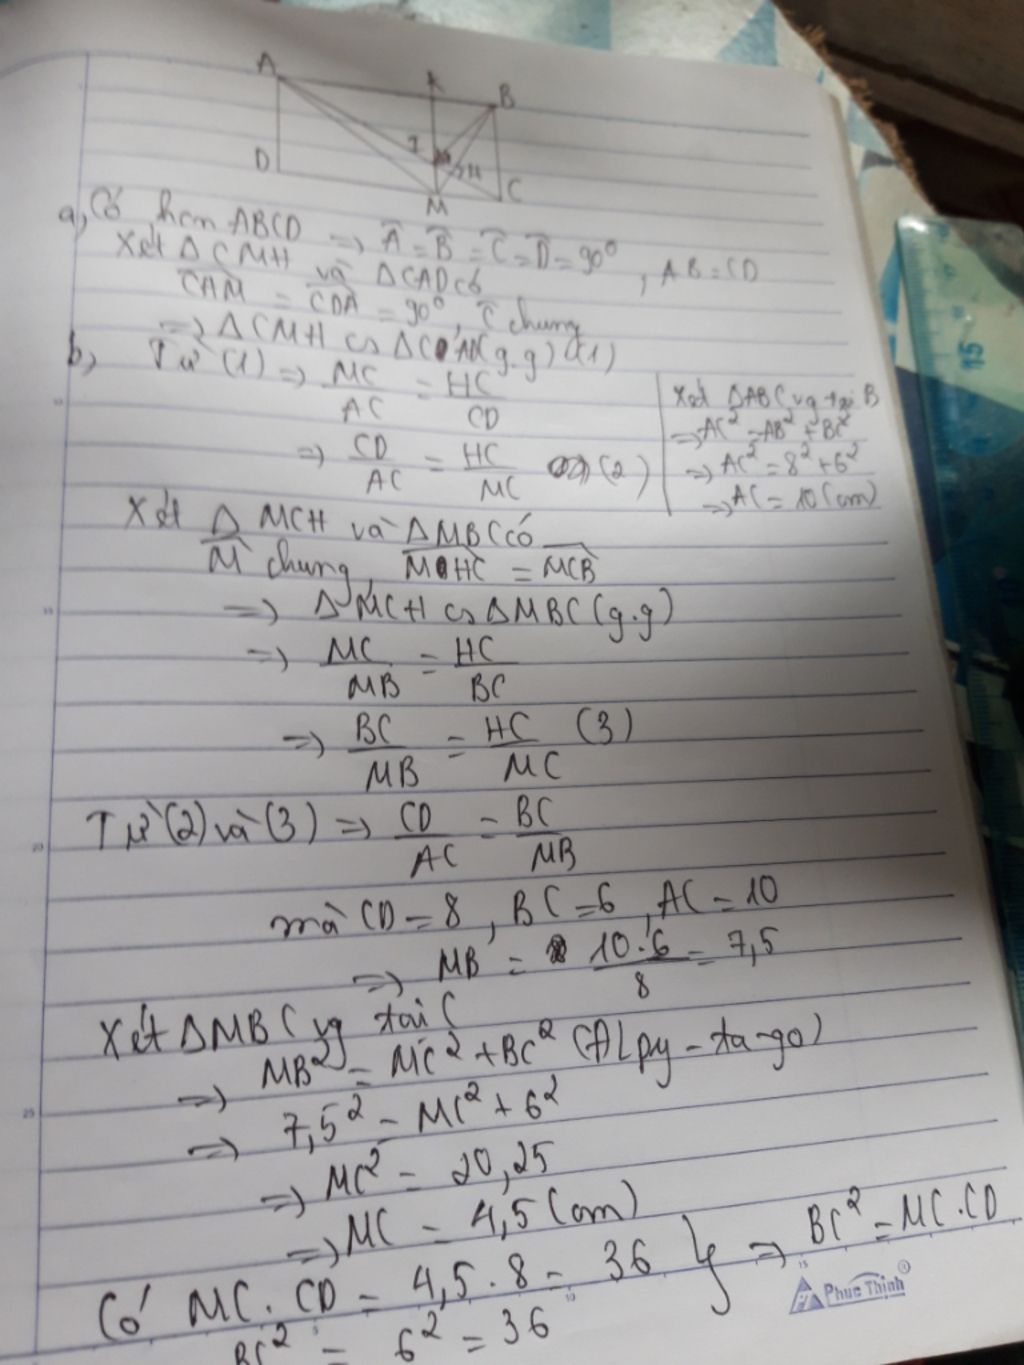 A K B
I
D H C
M
a, Có hcn ABCD => A = B = C = D = 90° , AB = CD
Xét Δ CMH và Δ CAD có
CAM = CDA = 90°, C chung
=> Δ CMH ∽ Δ CAD (g.g) (1)
b, Từ (1) => MC/AC = HC/CD
=> CD/AC = HC/MC (2)
Xét ΔABC vg tại B
=> AC² = AB² + BC²
=> AC² = 8² + 6²
=> AC = 10 (cm)
Xét Δ MCH và Δ MBC có
M chung, MHC = MCB
=> Δ MCH ∽ Δ MBC (g.g)
=> MC/MB = HC/BC
=> BC/MB = HC/MC (3)
Từ (2) và (3) => CD/AC = BC/MB
mà CD = 8, BC = 6, AC = 10
=> MB = 10.6/8 = 7,5
Xét Δ MBC vg tại C
=> MB² = MC² + BC² (ĐL py-ta-go)
=> 7,5² = MC² + 6²
=> MC² = 20,25
=> MC = 4,5 (cm)
Có MC.CD = 4,5.8 = 36 } => BC² = MC.CD
BC² = 6² = 36
Phuc Thinh®
15
10
15
20
25
5
10
15